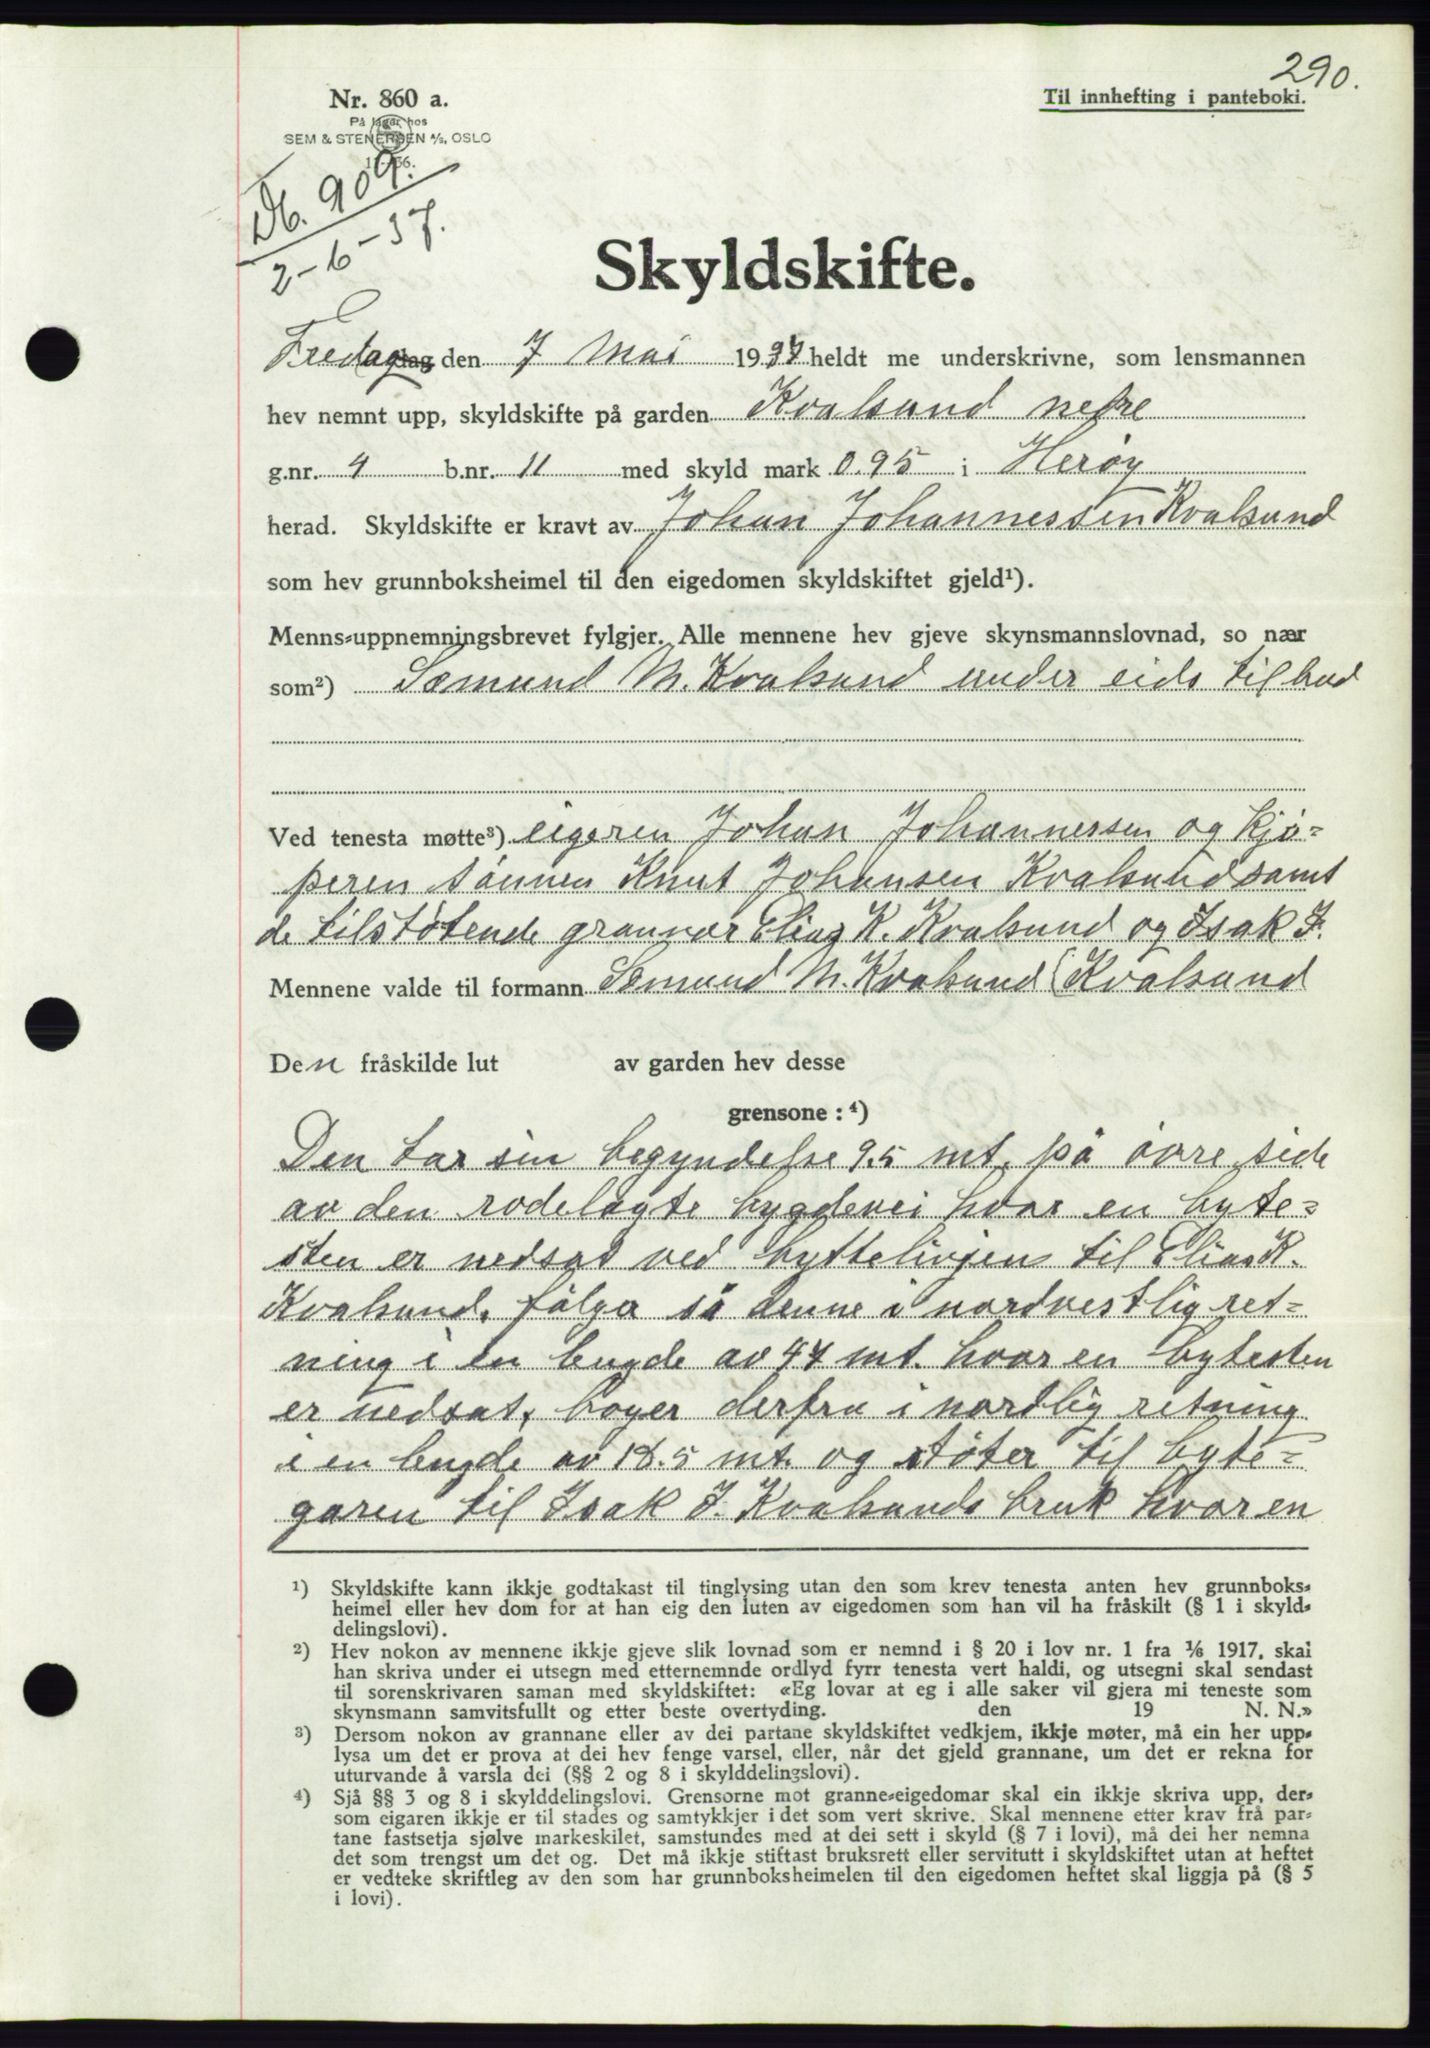 290.
Nr. 860 a.
Til innhefting i panteboki.
På lager hos
SEM & STENERSEN A/S, OSLO
Db. 909.
2-6-37.
Skyldskifte.
Fredag den 7 Mai 1937 heldt me underskrivne, som lensmannen
hev nemnt upp, skyldskifte på garden Kvalsund nefre
g.nr. 4 b.nr. 11 med skyld mark 0.95 i Herøy
herad. Skyldskifte er kravt av Johan Johannessen Kvalsund
som hev grunnboksheimel til den eigedomen skyldskiftet gjeld¹).
Menns-uppnemningsbrevet fylgjer. Alle mennene hev gjeve skynsmannslovnad, so nær
som²) Semund M. Kvalsund under eids tilbud
Ved tenesta møtte³) eigeren Johan Johannessen og kjø-
peren sønnen Knut Johansen Kvalsund samt
de tilstøtende grannar Elias K. Kvalsund og Isak J.
Mennene valde til formann Semund M. Kvalsund (Kvalsund
Den fråskilde lut av garden hev desse
grensone : ⁴)
Den tar sin begyndelse 9.5 mt. på øvre side
av den rodelagte bygdevei hvor en byte-
sten er nedsat ved byttelinjen til Elias K.
Kvalsund. følger så denne i nordvestlig ret-
ning i en lengde av 47 mt. hvor en bytesten
er nedsat, bøyer derfra i nordlig retning
i en lengde av 18.5 mt. og støter til byte-
garen til Isak J. Kvalsunds bruk hvor en
¹) Skyldskifte kann ikkje godtakast til tinglysing utan den som krev tenesta anten hev grunnboks-
heimel eller hev dom for at han eig den luten av eigedomen som han vil ha fråskilt (§ 1 i skyld-
delingslovi).
²) Hev nokon av mennene ikkje gjeve slik lovnad som er nemnd i § 20 i lov nr. 1 fra 1/6 1917, skal
han skriva under ei utsegn med etternemnde ordlyd fyrr tenesta vert haldi, og utsegni skal sendast
til sorenskrivaren saman med skyldskiftet: «Eg lovar at eg i alle saker vil gjera mi teneste som
skynsmann samvitsfullt og etter beste overtyding. den 19 N. N.»
³) Dersom nokon av grannane eller av dei partane skyldskiftet vedkjem, ikkje møter, må ein her upp-
lysa um det er prova at dei hev fenge varsel, eller, når det gjeld grannane, um det er rekna for
uturvande å varsla dei (§§ 2 og 8 i skylddelingslovi).
⁴) Sjå §§ 3 og 8 i skylddelingslovi. Grensorne mot granne-eigedomar skal ein ikkje skriva upp, der-
som eigaren ikkje er til stades og samtykkjer i det som vert skrive. Skal mennene etter krav frå par-
tane fastsetja sjølve markeskilet, samstundes med at dei sett i skyld (§ 7 i lovi), må dei her nemna
det som trengst um det og. Det må ikkje stiftast bruksrett eller servitutt i skyldskiftet utan at heftet
er vedteke skriftleg av den som har grunnboksheimelen til den eigedomen heftet skal liggja på (§ 5
i lovi).